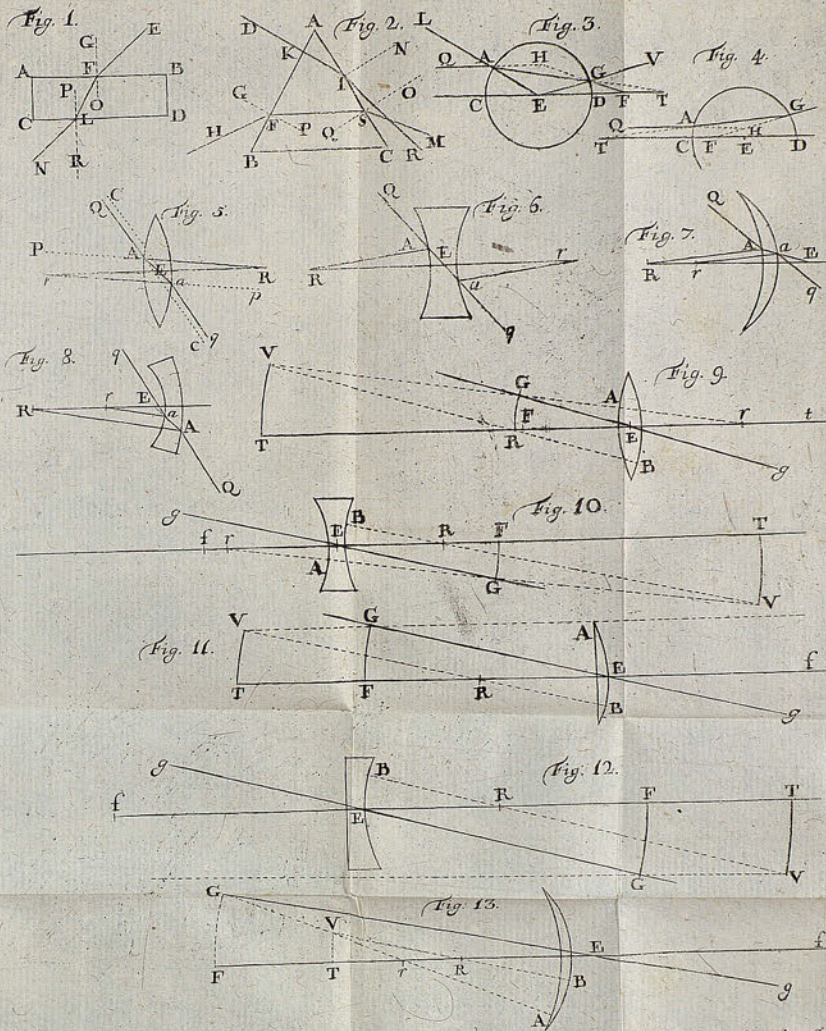 Fig. 1.
G E
A F B
P O
C L D
N R
Fig. 2.
D A N
K I O
G F P Q S
H B C R M
Fig. 3.
L Q A H G V
C E D F T
Fig. 4.
Q A G
T C F E H D
Fig. 5.
Q C
P A E R
r a p
C q
Fig. 6.
Q A E r
R a q
Fig. 7.
Q A a E
R r q
Fig. 8.
q R r E a A
Q
Fig. 9.
V G A
T F R E r t
B g
Fig. 10.
g E B R F T
f r A G V
Fig. 11.
V G A
T F R E f
B g
Fig. 12.
g B R F T
f E G V
Fig. 13.
G V E f
F T r R B g
A